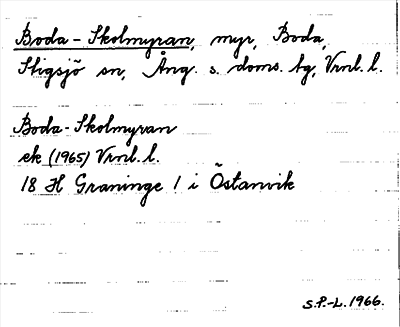 Boda-Skolmyran, myr, Boda,
Stigsjö sn, Ång. s. doms. tg, Vrnl. l.
Boda-Skolmyran
ek (1965) Vrnl. l.
18 H Graninge 1 i Östanvik
S.P.-L. 1966.